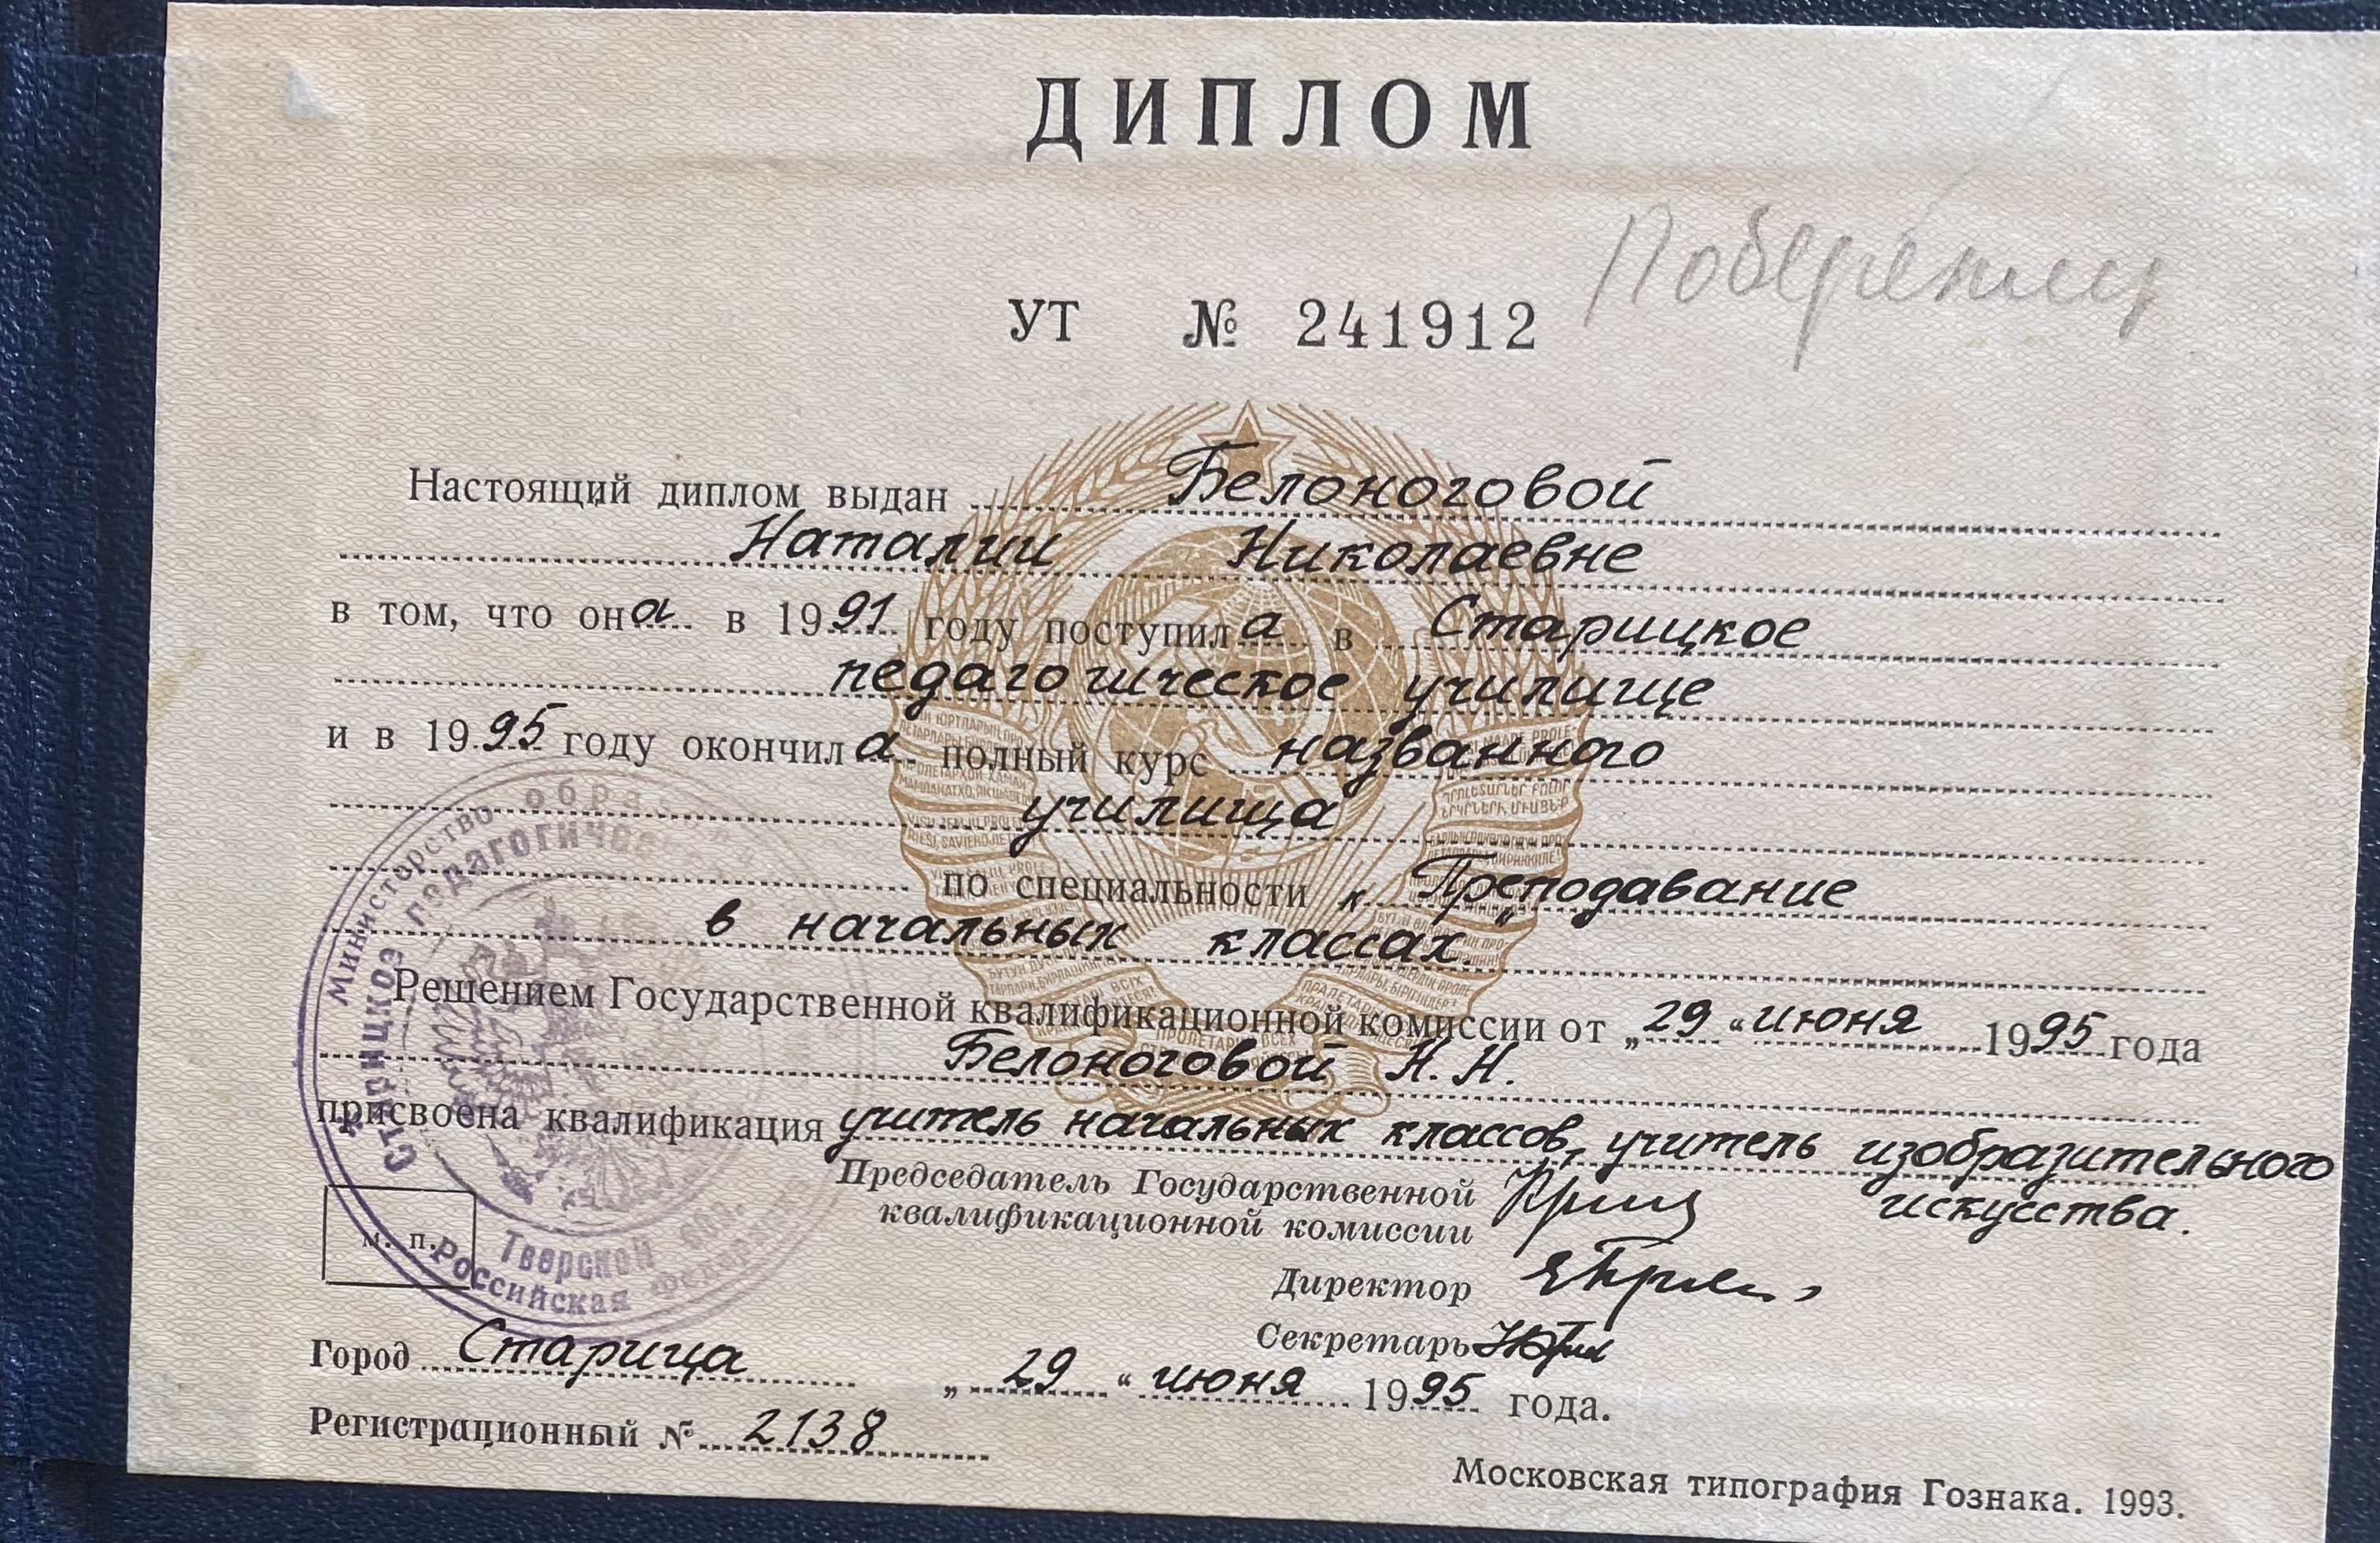 ДИПЛОМ
УТ № 241912
Настоящий диплом выдан Белоноговой
Наталии Николаевне
в том, что она в 1991 году поступила в Старицкое
педагогическое училище
и в 1995 году окончила полный курс названного
училища
по специальности Преподавание
в начальных классах.
Решением Государственной квалификационной комиссии от „29“ июня 1995 года
Белоноговой Н. Н.
присвоена квалификация учитель начальных классов, учитель изобразительного
искусства.
Председатель Государственной
квалификационной комиссии
Директор
Секретарь
м. п.
Город Старица
„29“ июня 1995 года.
Регистрационный № 2138
Московская типография Гознака. 1993.
Министерство
Старицкое
Тверской
Российская